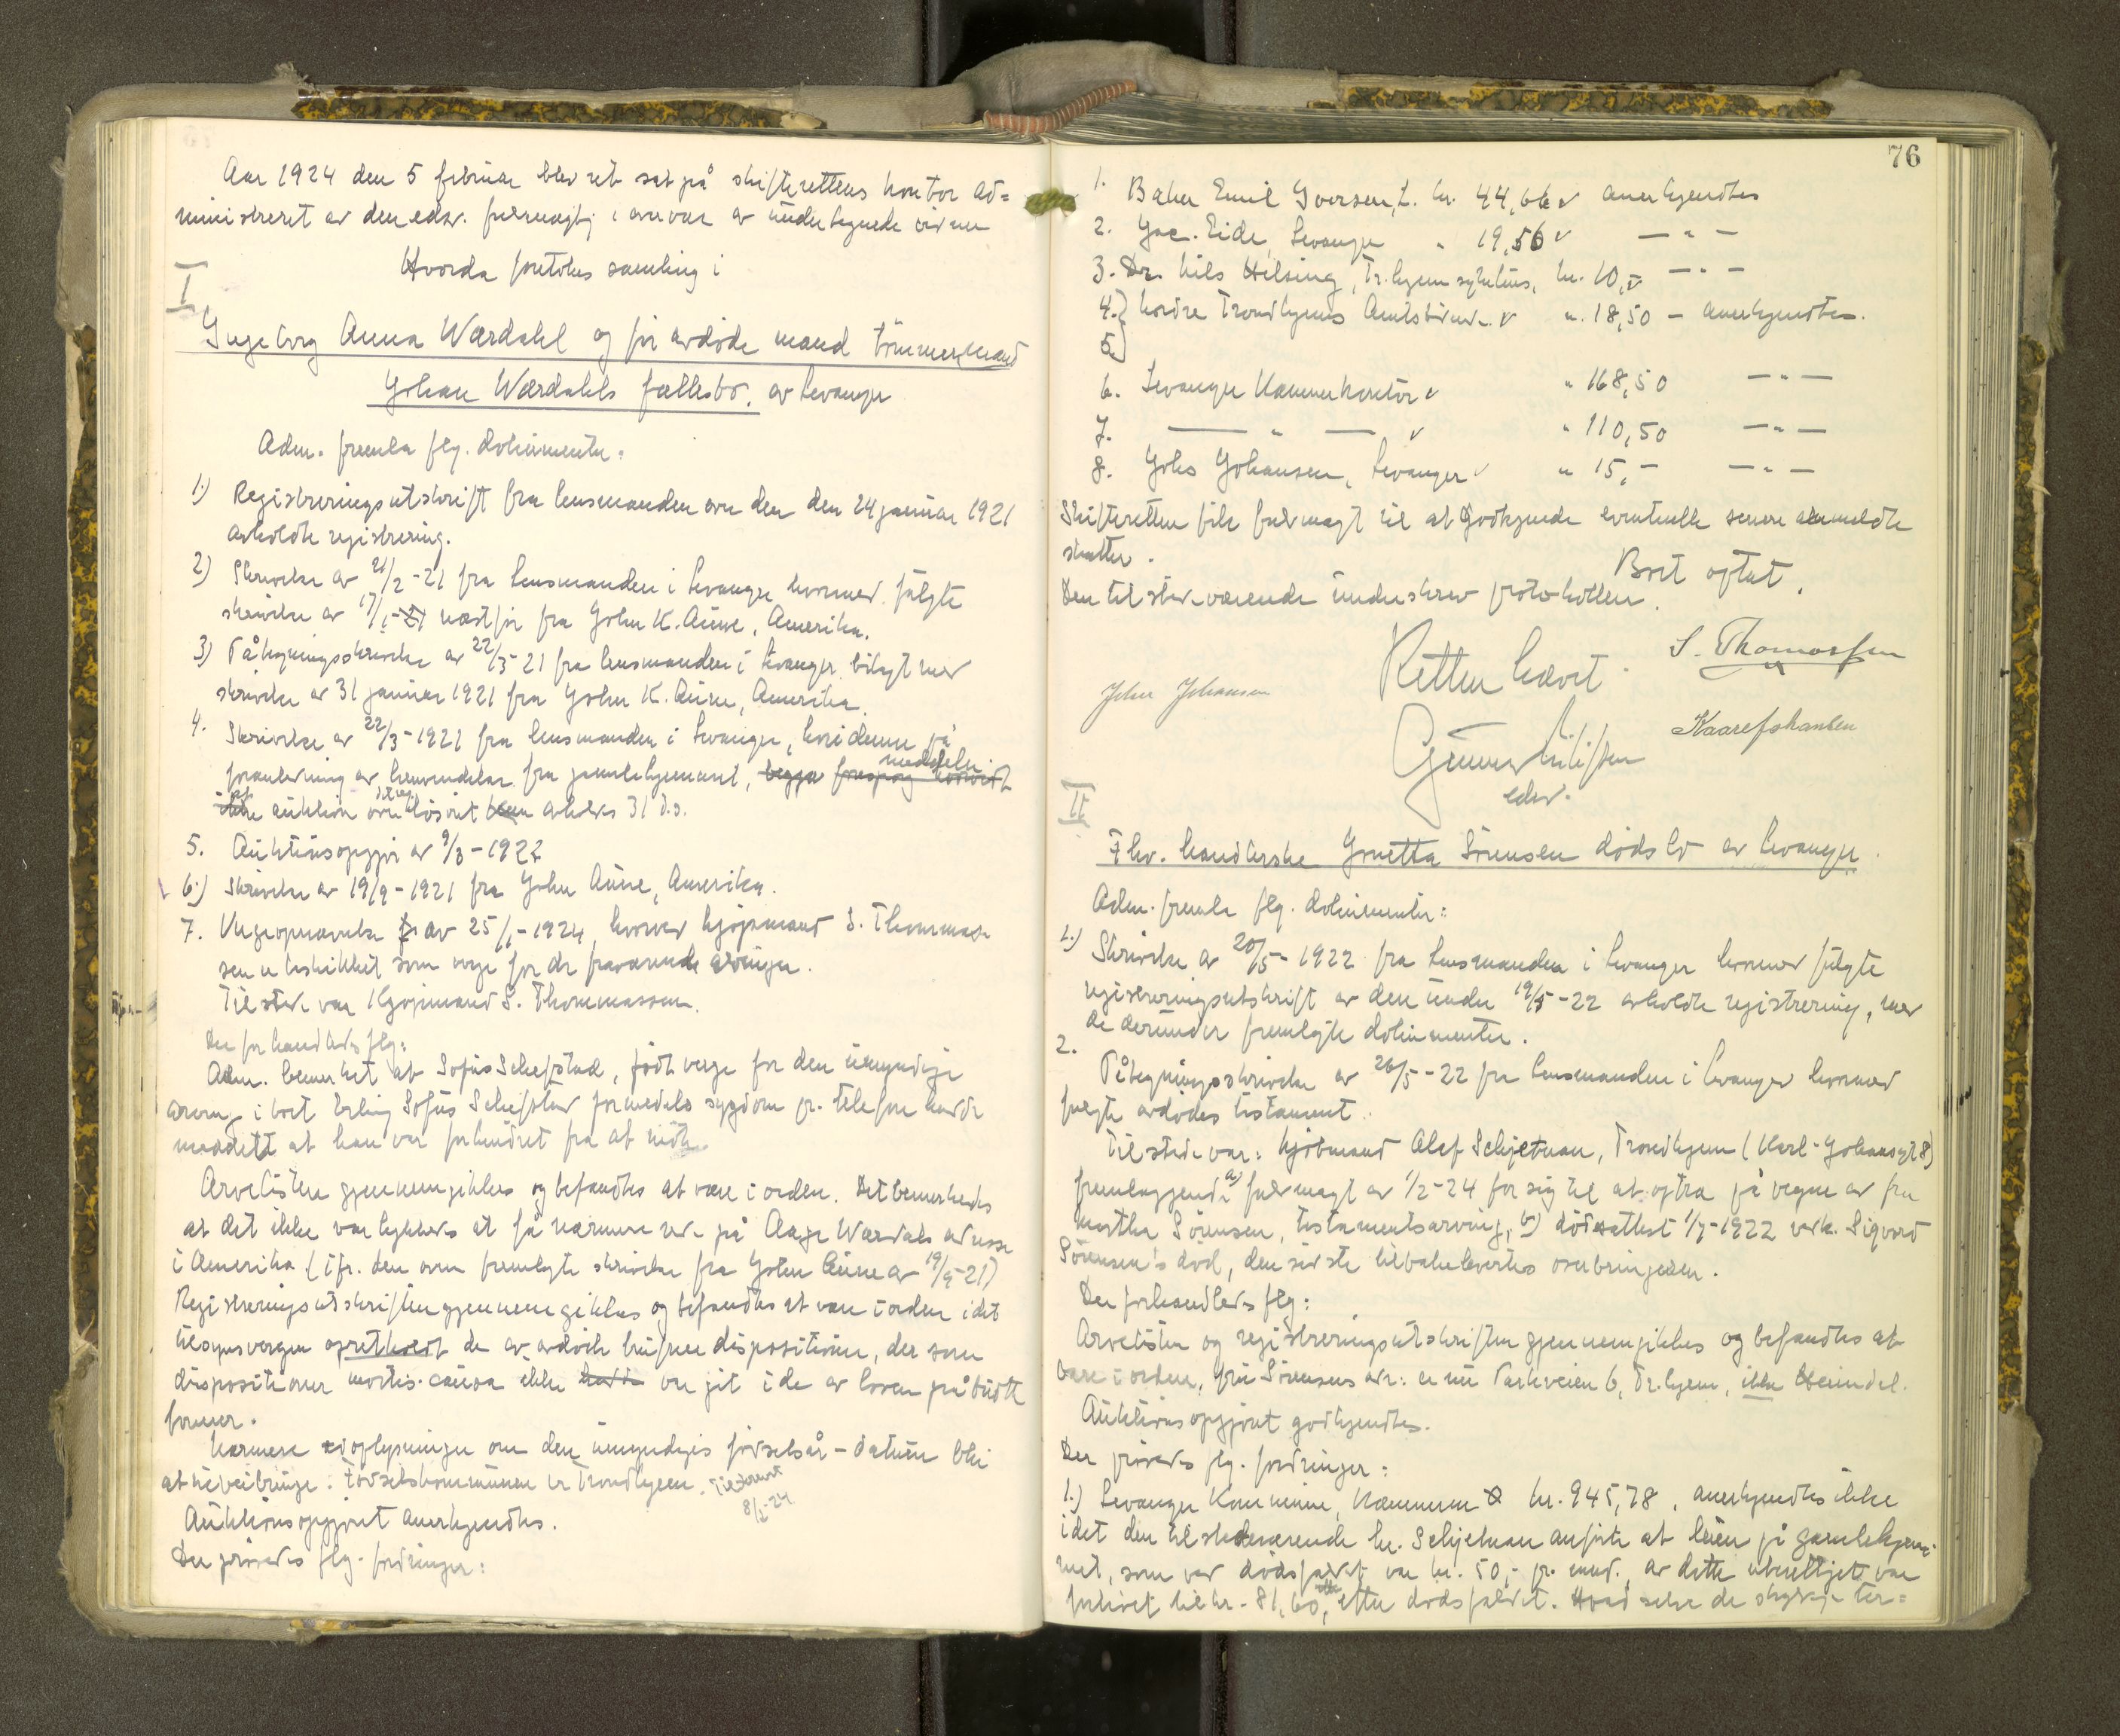 Aar 1924 den 5 februar blev ret sat på skifterettens kontor ad=
ministreret av den edsv. fuldmægtig i overvær av undertegnede vidner
Hvorda foretokes samling i
I
Ingeborg Anna Wærdahl og før avdøde mand tømmermand
Johan Wærdahls fællesbo. av Levanger
Adm. fremla flg. dokumenter:
1.) Registreringsutskrift fra lensmanden over den den 24 januar 1921
avholdte registrering.
2) Skrivelse av 21/2-21 fra lensmanden i Levanger hvormed fulgte
skrivelse av 17/1-21 næstfør fra John K. Aune, Amerika.
3) Påtegningsskrivelse av 22/3-21 fra lensmanden i Levanger bilagt med
skrivelse av 31 januar 1921 fra John K. Aune, Amerika.
4. Skrivelse av 22/3-1921 fra lensmanden i Levanger, hvori denne på
foranledning av henvendelse fra gamlehjemmet, begjæ forespørg hvorvidt meddeler
ikke at auktion over løsøret kan avholdes 31 d.s.
5. Auktionsopgjør av 9/3-1922
6.) Skrivelse av 19/9-1921 fra John Aune, Amerika.
7. Vergeopnævnelse av 25/1-1924, hvorved kjøpmand S. Thommas-
sen er beskikket som verge for de fraværende arvinger.
Tilstede var Kjøpmand S. Thommassen.
Der forhandledes flg:
Adm. bemerket at Sofus Schefstad, født verge for den umyndige
arving i boet Erling Sofus Schefstad formedels sygdom pr. telefon hadde
meddelt at han var forhindret fra at møte.
Arvelisten gjennemgikkes og befandtes at være i orden. Det bemerkedes
at det ikke var lykkedes at få nærmere rede på Aage Wærdals adresse
i Amerika (jfr. den oven fremlagte skrivelse fra John Aune av 19/9-21)
Registreringsutskriften gjennemgikkes og befandtes at være i orden idet
tilsynsvergen opretholdt de av avdøde trufne dispositioner, der som
dispositioner mortis causa ikke hadde var git i de av loven påbudte
former.
Nærmere oplysninger om den umyndiges fødselsår - datum blir
at tilveiebringe. Fødselskommunen er Trondhjem. Tilskrevet
8/2-24
Auktionsopgjøret anerkjendtes.
Der prøvedes flg. fordringer:
76
1. Baker Emil Iversen, L. kr. 44,66 v anerkjendtes
2. Jac. Eide, Levanger " 19,56 v — " —
3. Dr. Nils Hilsing, Tr.hjem sykehus, kr. 10,- v — " —
4.) Nordre Trondhjems Amtstidende v " 18,50 - anerkjendtes.
5.)
6. Levanger Kæmnerkontor v " 168,50 — " —
7. — " — v " 110,50 — " —
8. Johs Johansen, Levanger v " 15,- — " —
Skifteretten fik fuldmagt til at godkjende eventuelle senere anmeldte
skatter.
Boet optat.
Den tilstedeværende underskrev protokollen.
Retten hævet.
S. Thomassen
John Johansen
Kaare Johansen
Gunnar
edsv.
II
Fhv. handlerske Gruetta Sørensen dødsbo av Levanger.
Adm. fremla flg. dokumenter:
1.) Skrivelse av 20/5-1922 fra lensmanden i Levanger hvormed fulgte
registreringsutskrift av den under 19/5-22 avholdte registrering, med
de derunder fremlagte dokumenter.
2. Påtegningsskrivelse av 26/5-22 fra lensmanden i Levanger hvormed
fulgte avdødes testament.
Tilstede var: kjøbmand Olaf Schjetnan, Trondhjem (Karl-Johansgt 8)
fremlæggende a) fuldmagt av 1/2-24 for sig til at optræ på vegne av fru
Martha Sørensen, testamentsarving, b) dødsattest 1/7-1922 vedk. Sigvard
Sørensen's død, den sidste tilbakeleverdes overbringeren.
Der forhandledes flg:
Arvelisten og registreringsutskriften gjennemgikkes og befandtes at
være i orden, fru Sørensens adr: er nu Parkveien 6, Tr.hjem, ikke Heimdal.
Auktionsopgjøret godkjendtes.
Der prøvedes flg. fordringer:
1.) Levanger Kommune, Kæmneren kr. 945,78, anerkjendtes ikke
idet den tilstedeværende hr. Schjetnan anførte at leien på gamlehjem-
met, som ved dødsfaldet var kr. 50,- pr. mnd., av dette uberettiget var
forhøiet til kr. 81,60, efter dødsfaldet. Hvad selve de skyldige ter=